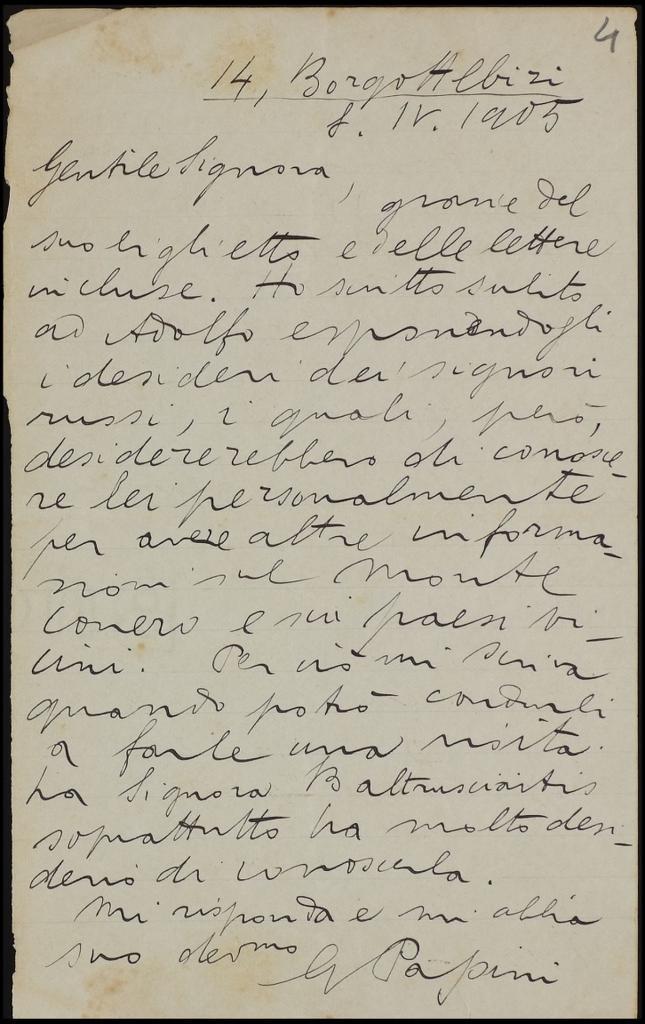 4
14, Borgo Albizi
8. IV. 1905
Gentile Signora,
grazie del
suo biglietto e delle lettere
incluse. Ho scritto subito
ad Adolfo esponendogli
i desideri dei signori
russi, i quali, però,
desidererebbero di conosce-
re lei personalmente
per avere altre informa-
zioni sul Monte
Conero e sui paesi vi-
cini. Perciò mi scriva
quando potrò condurli
a farle una visita.
La Signora Baltrusciaitis
soprattutto ha molto desi-
derio di conoscerla.
Mi risponda e mi abbia
suo devmo G Papini